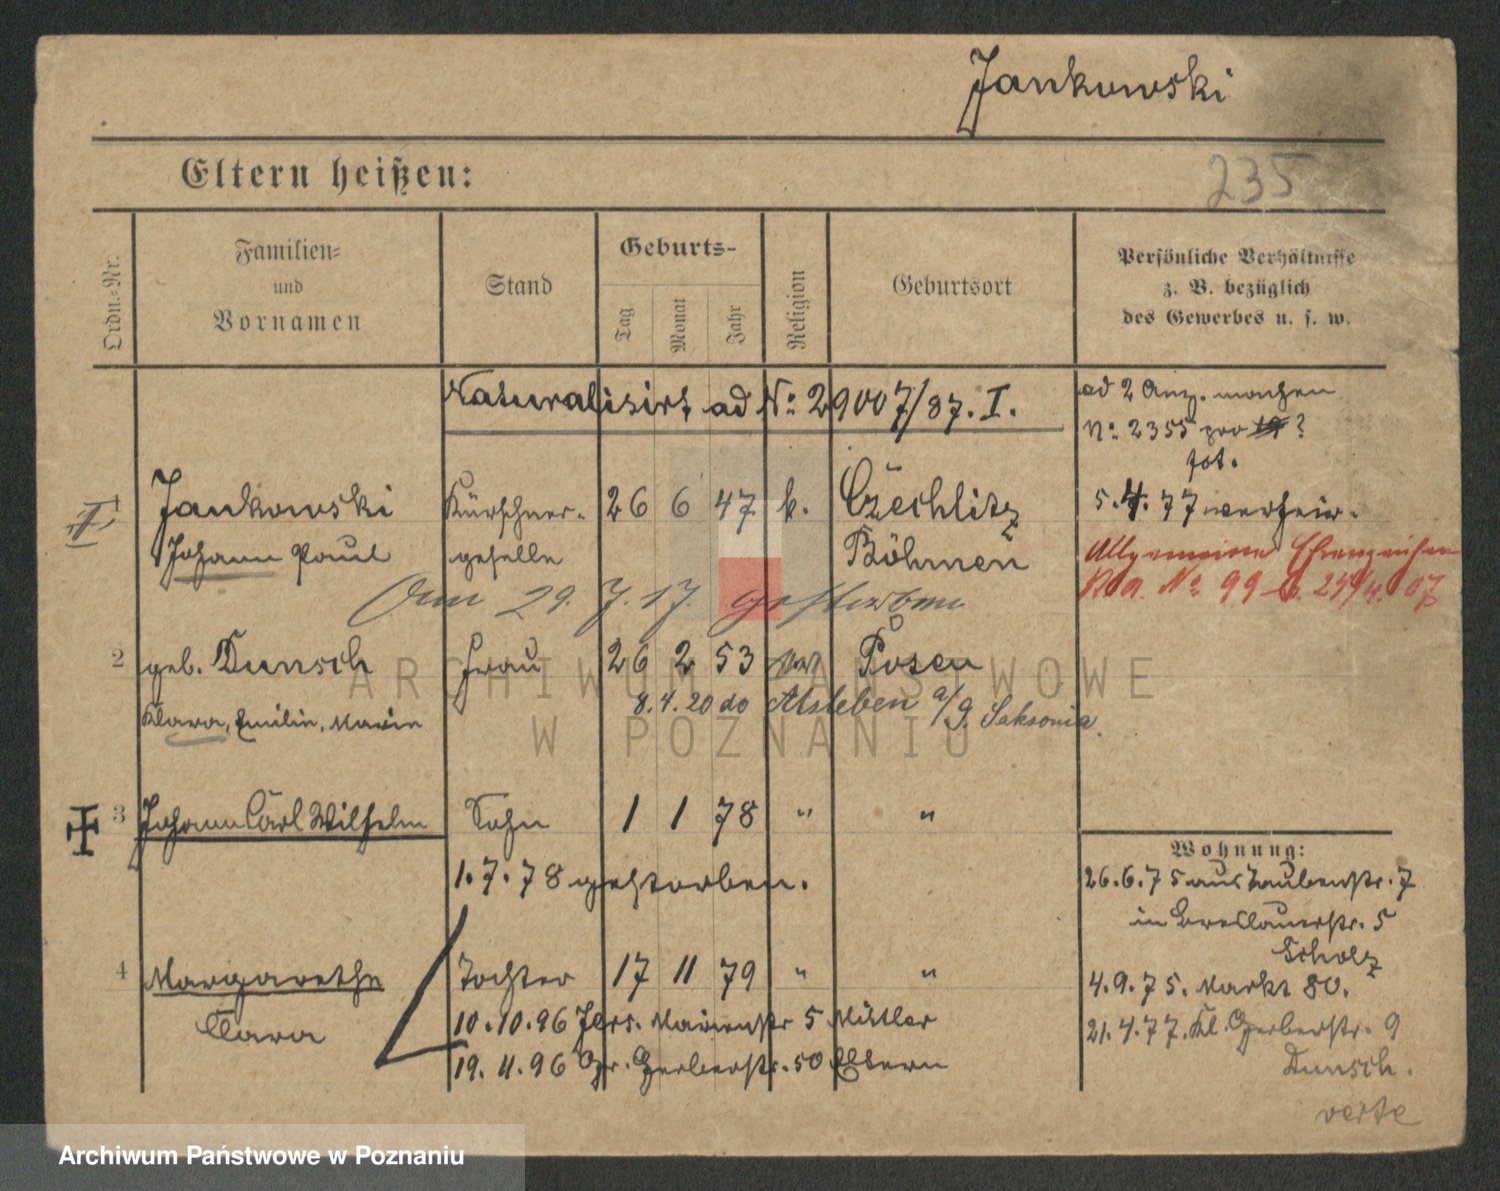 Jankowski
Eltern heißen:
235
Ordn.-Nr.
Familien-
und
Vornamen
Stand
Geburts-
Tag
Monat
Jahr
Religion
Geburtsort
Persönliche Verhältnisse
z. B. bezüglich
des Gewerbes u. s. w.
Naturalisirt ad No: 29007/87. I.
ad 2 Anz. machen
No: 2355 pro 19?
Jankowski Kürschner- 26 6 47 k. Czechlitz
5.4.77 verheir.
Johann Paul geselle Böhmen
Allgemeine Ehrenzeichen
No 99
Am 29. 7. 17. gestorben
2 geb. Dunsch Frau 26 2 53 Posen
8.4.20 do Alsleben a/S. Saksonia.
Klara, Emilie, Marie
ARCHIWUM PAŃSTWOWE
W POZNANIU
3 Johann Carl Wilhelm Sohn 1 1 78 " "
1.7.78 gestorben.
Wohnung:
26.6.75 aus Taubenstr. 7
in Breslauerstr. 5
Scholz
4 Margarethe Tochter 17 11 79 " "
4.9.75. Markt 80.
Clara
10.10.96 Jers. Marienstr 5 Mittler
21.4.77. Kl. Gerberstr. 9
19. 11. 96 Gr. Gerberstr. 50 Eltern
Dunsch.
verte
Archiwum Państwowe w Poznaniu